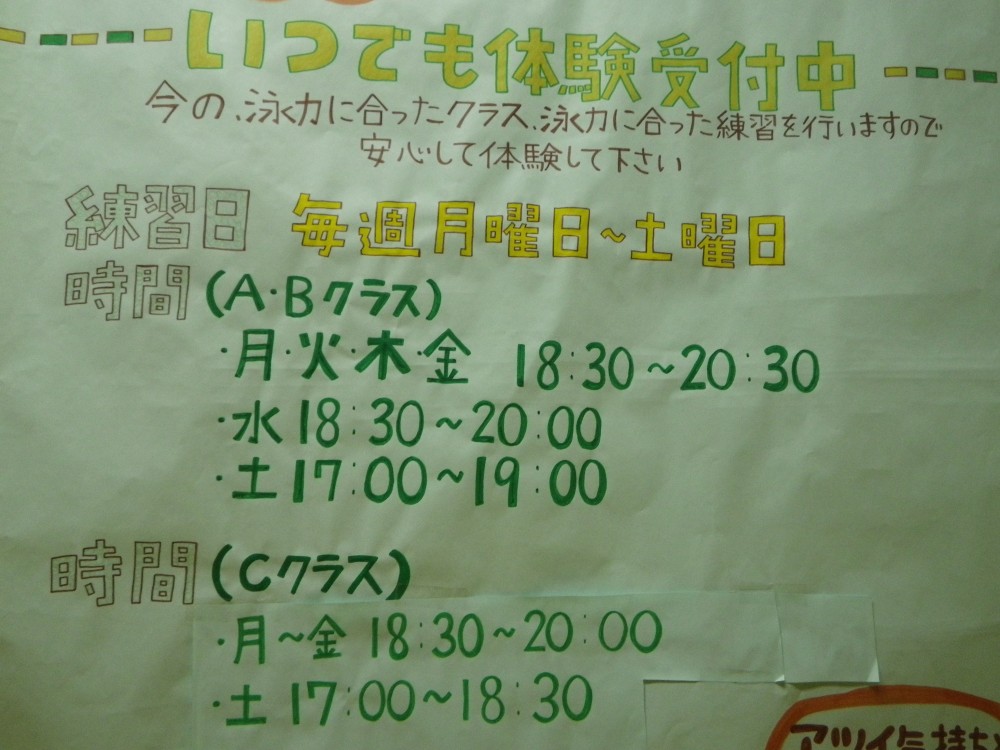 いつでも体験受付中
今の、泳力に合ったクラス、泳力に合った練習を行いますので
安心して体験して下さい
練習日 毎週月曜日~土曜日
時間(A・Bクラス)
・月・火・木・金 18:30~20:30
・水18:30~20:00
・土17:00~19:00
時間(Cクラス)
・月~金 18:30~20:00
・土 17:00~18:30
アツイ気持ち